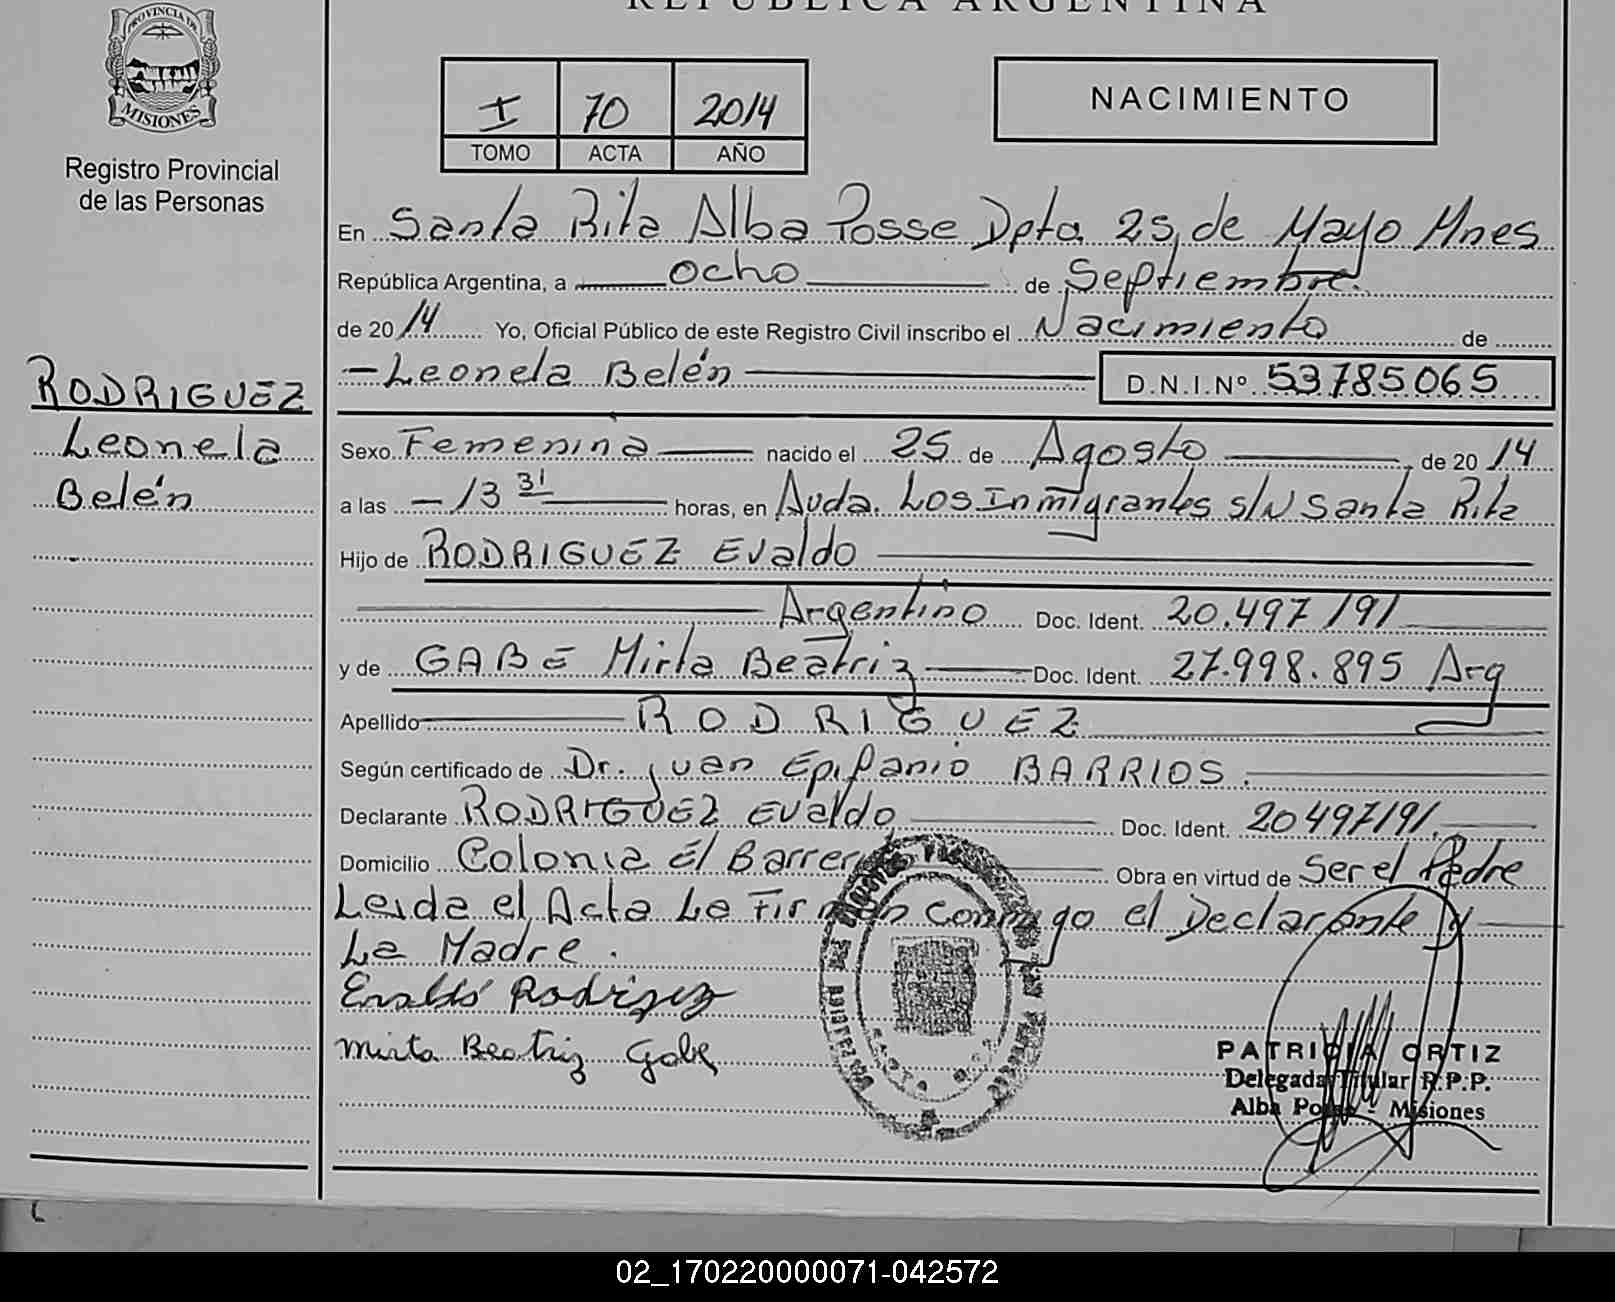 REPÚBLICA ARGENTINA
PROVINCIA DE
MISIONES
Registro Provincial
de las Personas
I 70 2014
TOMO ACTA AÑO
NACIMIENTO
En Santa Rita Alba Posse Dpto. 25 de Mayo Mnes
República Argentina, a ocho de Septiembre.
de 2014 Yo, Oficial Público de este Registro Civil inscribo el Nacimiento de
- Leonela Belén D.N.I.Nº 53785065
RODRIGUEZ
Leonela
Belén
Sexo Femenina nacido el 25 de Agosto de 2014
a las - 13 31 horas, en Avda. Los Inmigrantes s/N Santa Rita
Hijo de RODRIGUEZ Evaldo
Argentino Doc. Ident. 20.497191
y de GABE Mirta Beatriz Doc. Ident. 27.998.895 Arg
Apellido RODRIGUEZ
Según certificado de Dr. Juan Epifanio BARRIOS.
Declarante RODRIGUEZ Evaldo Doc. Ident. 20497191.
Domicilio Colonia El Barrerito Obra en virtud de Ser el Padre
Leida el Acta La Firman conmigo el Declarante y
La Madre.
Evaldo Rodriguez
Mirta Beatriz Gabe
PATRICIA ORTIZ
Delegada Titular R.P.P.
Alba Posse - Misiones
02_170220000071-042572